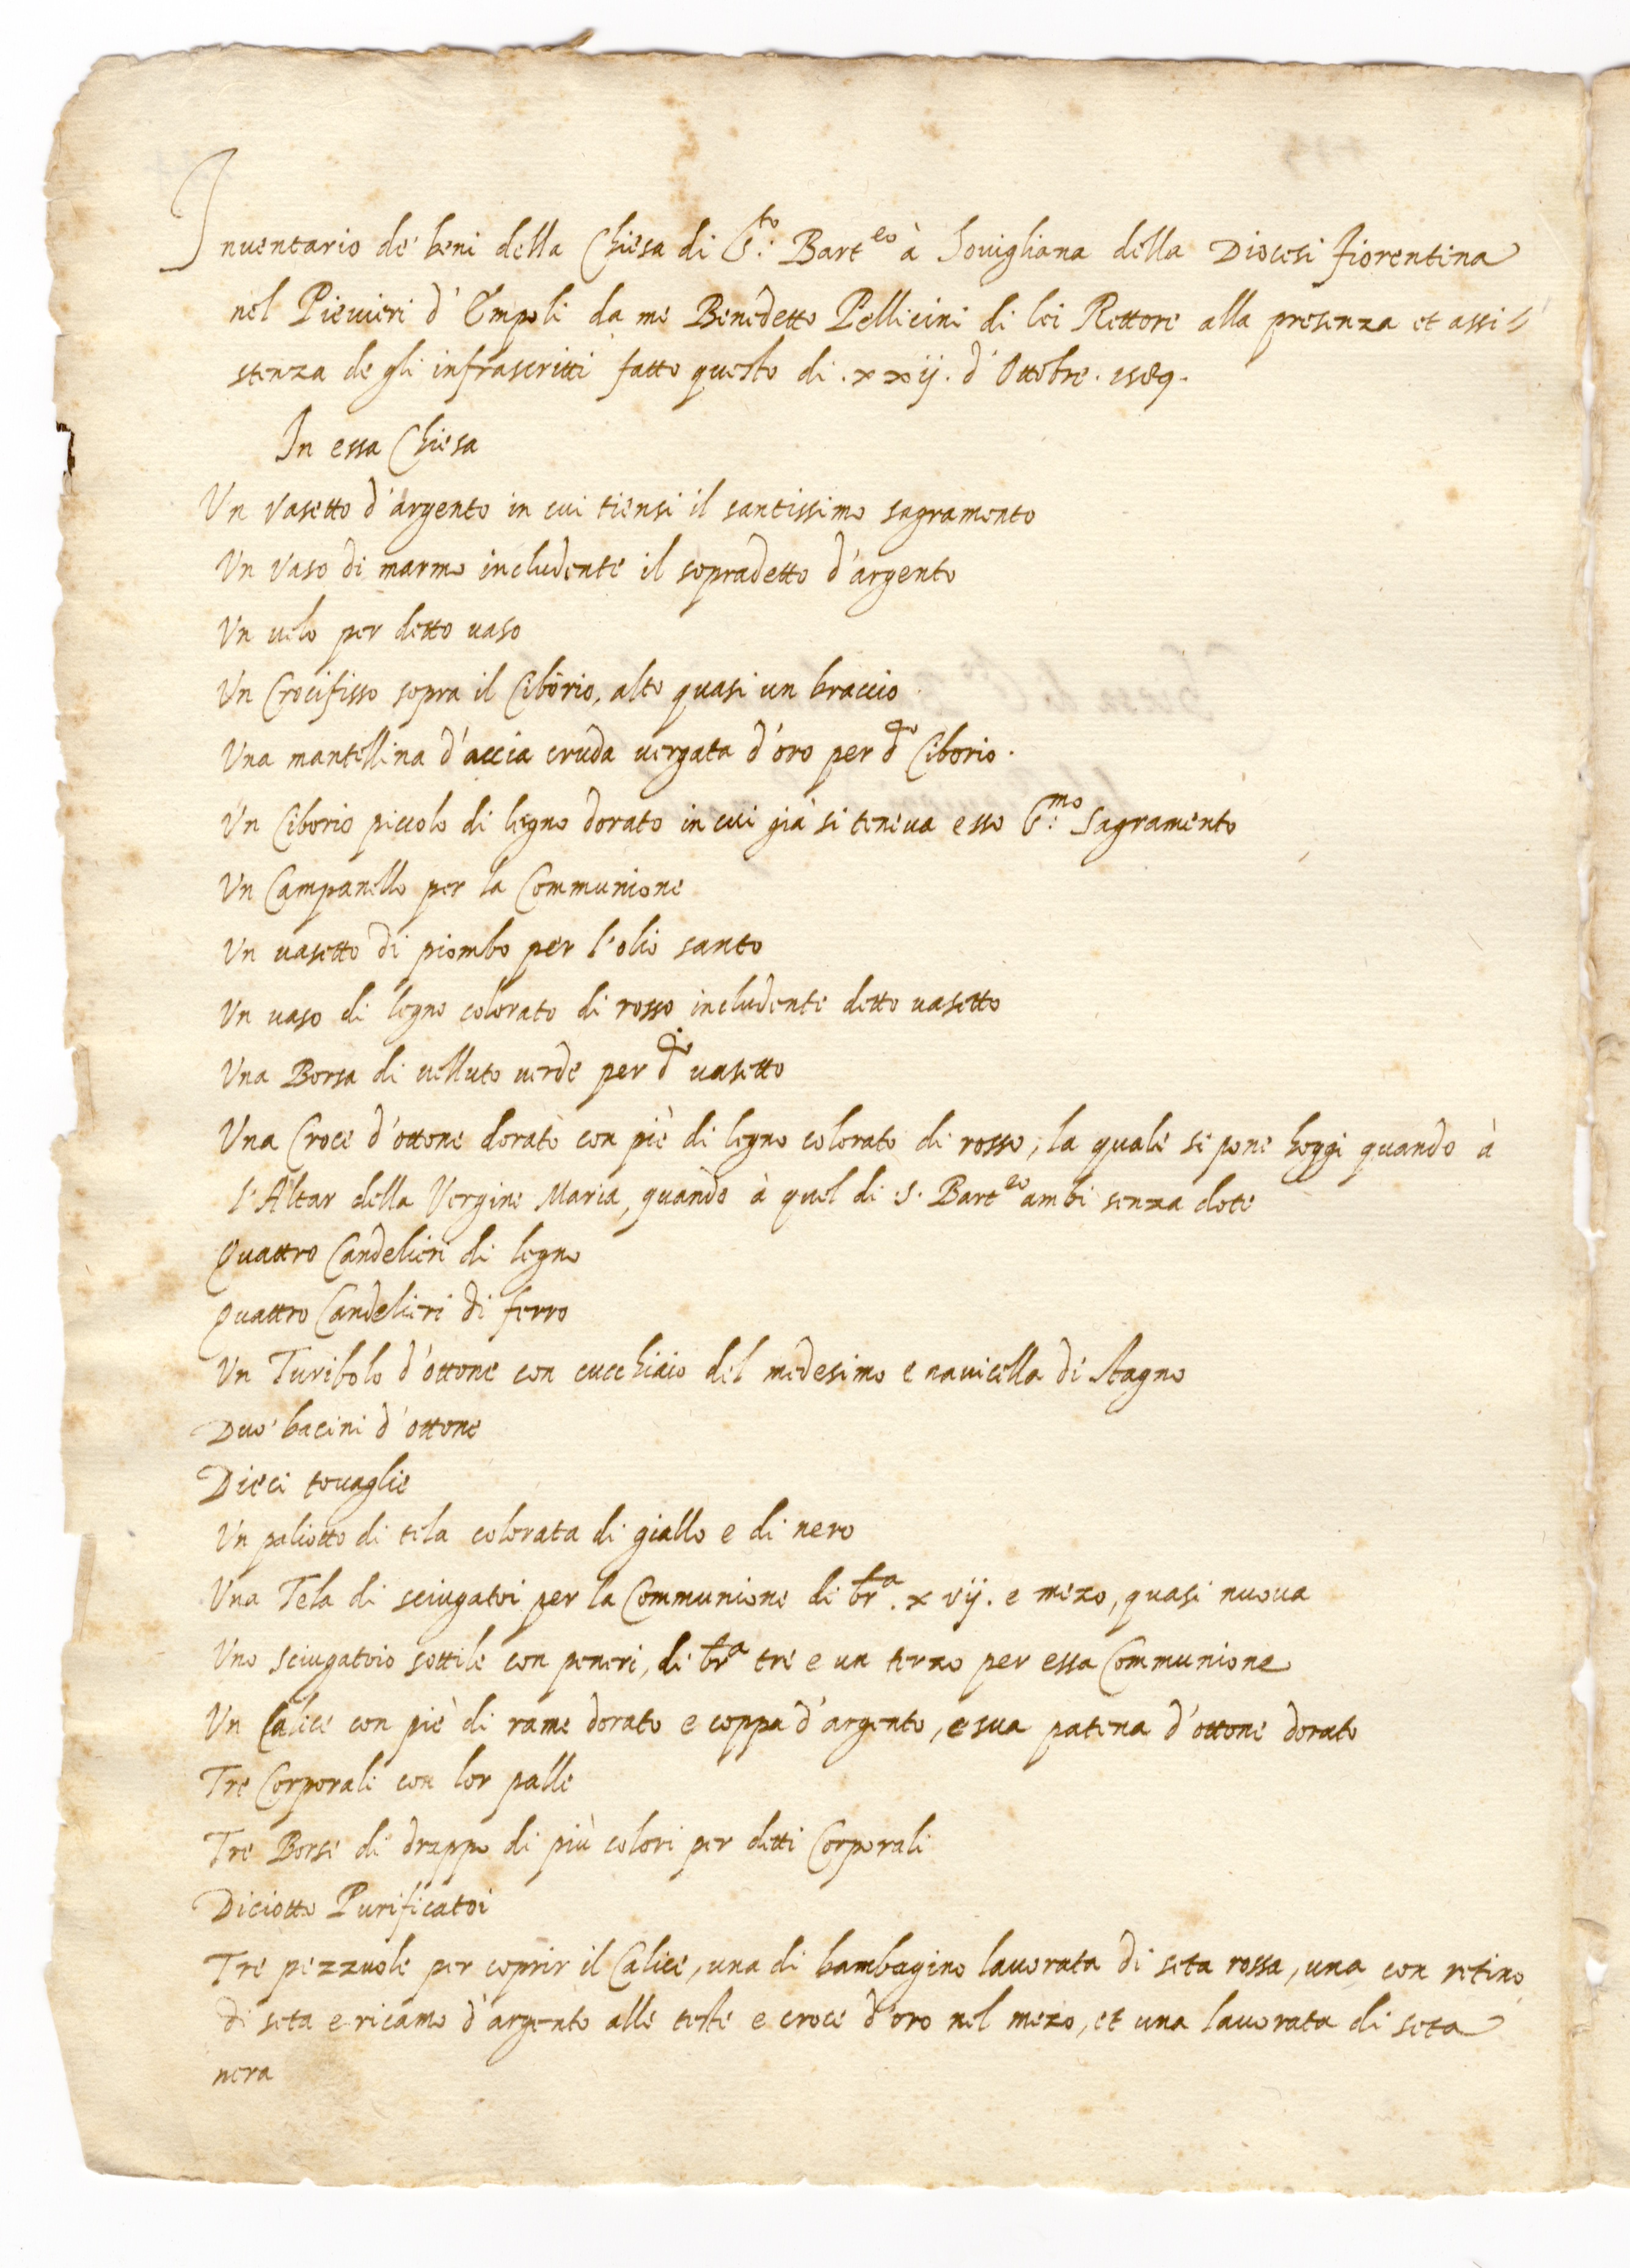 Inuentario de' beni della Chiesa di S.to Barteo à Souigliana della Diocesi fiorentina
nel Piuuieri d'Empoli da me Benedetto Pellicini di lei Rettore alla presenza et assis
stenza degli infrascritti fatto questo di .xxij. d'Ottobre. 1589.
In essa Chiesa
Un Vasetto d'argento in cui tiensi il santissimo sagramento
Un Vaso di marmo includente il sopradetto d'argento
Un uelo per detto uaso
Un Crocifisso sopra il Ciborio, alto quasi un braccio.
Una mantellina d'accia cruda uergata d'oro per do Ciborio.
Un Ciborio piccolo di legno dorato in cui già si teneua esso S.mo Sagramento
Un Campanello per la Communione
Un uasetto di piombo per l'olio santo
Un uaso di legno colorato di rosso includente detto uasetto
Una Borsa di uelluto uerde per do uasetto
Una Croce d'ottone dorato con piè di legno colorato di rosso, la quale si pone hoggi quando à
l'Altar della Vergine Maria, quando à quel di S. Barteo ambi senza dote
Quattro Candelieri di legno
Quattro Candelieri di ferro
Un Turibolo d'ottone con cucchiaio del medesimo e nauicella di stagno
Duo bacini d'ottone
Dieci touaglie
Un paliotto di tela colorata di giallo e di nero
Una Tela di sciugatoi per la Communione di bra. xvij. e mezo, quasi nuoua
Uno sciugatoio sottile con peneri, di bra tre e un terzo per essa Communione
Un Calice con piè di rame dorato e coppa d'argento, e sua patena d'ottone dorato
Tre Corporali con lor palle
Tre Borse di drappo di più colori per detti Corporali
Diciotto Purificatoi
Tre pezzuole per coprir il Calice, una di bambagino lauorata di seta rossa, una con retino
di seta e ricamo d'argento alle teste e croce d'oro nel mezo, et una lauorata di seta
nera